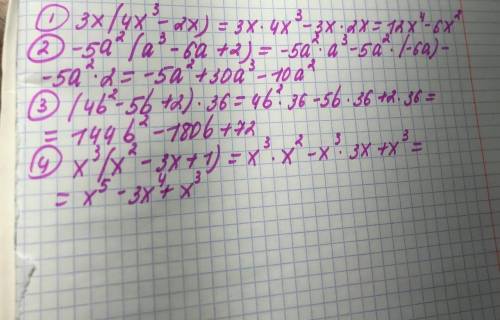 ① 3x(4x³-2x) = 3x·4x³-3x·2x=12x⁴-6x²
② -5a²(a³-6a+2) = -5a²·a³-5a²·(-6a)-
-5a²·2=-5a²+30a³-10a²
③ (4b²-5b+2)·36=4b²·36-5b·36+2·36=
= 144b²-180b+72
④ x³(x²-3x+1)=x³·x²-x³·3x+x³=
= x⁵-3x⁴+x³